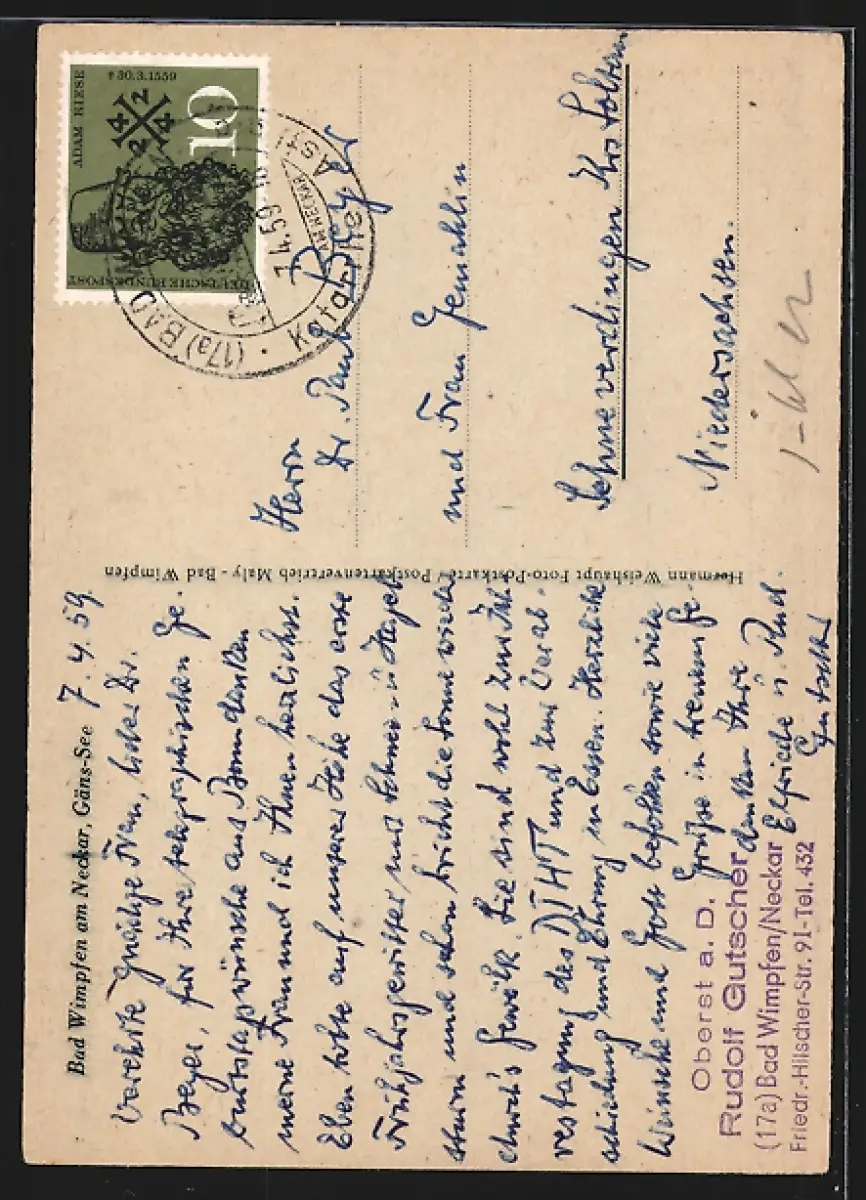 Bad Wimpfen am Neckar, Gäns-See
7.4.59.
Verehrte Gnädige Frau, lieber Dr.
Beyer, für Ihre telegraphischen Ge-
burtstagswünsche aus Bonn danken
meine Frau und ich Ihnen herzlichst.
Eben tobte auf unserer Höhe das erste
Frühjahrsgewitter mit Schnee- u Hagel
sturm und schon bricht die Sonne wieder
durch's Gewölk. Sie sind wohl zur Jah
restagung des DIHT und zur Verab-
schiedung und Ehrung in Essen. Herzliche
Wünsche und Gott befohlen sowie viele
Grüße in treuem Ge-
denken Ihre
Elfriede u. Rud.
Gutscher
Oberst a. D.
Rudolf Gutscher
(17a) Bad Wimpfen/Neckar
Friedr.-Hilscher-Str. 91-Tel. 432
Hermann Weishaupt Foto-Postkarte Postkartenvertrieb Maly - Bad Wimpfen
ADAM RIESE
† 30.3.1559
10
DEUTSCHE BUNDESPOST
(17a) BAD
7.4.59
AM NECKAR
Herrn
Dr. Paul Beyer
und Frau Gemahlin
Schneverdingen Krs Soltau
Niedersachsen.